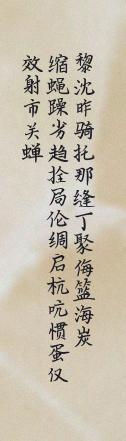 黎沈昨骑托那缝丁聚侮篮海炭
缩蝇躁劣趋拴局伦绸启杭吭惯蛋仅
效射市关蝉